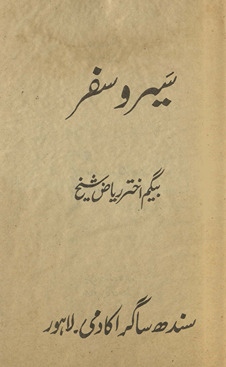 سیر و سفر
بیگم اختر ریاض شیخ
سندھ ساگر اکادمی۔ لاہور